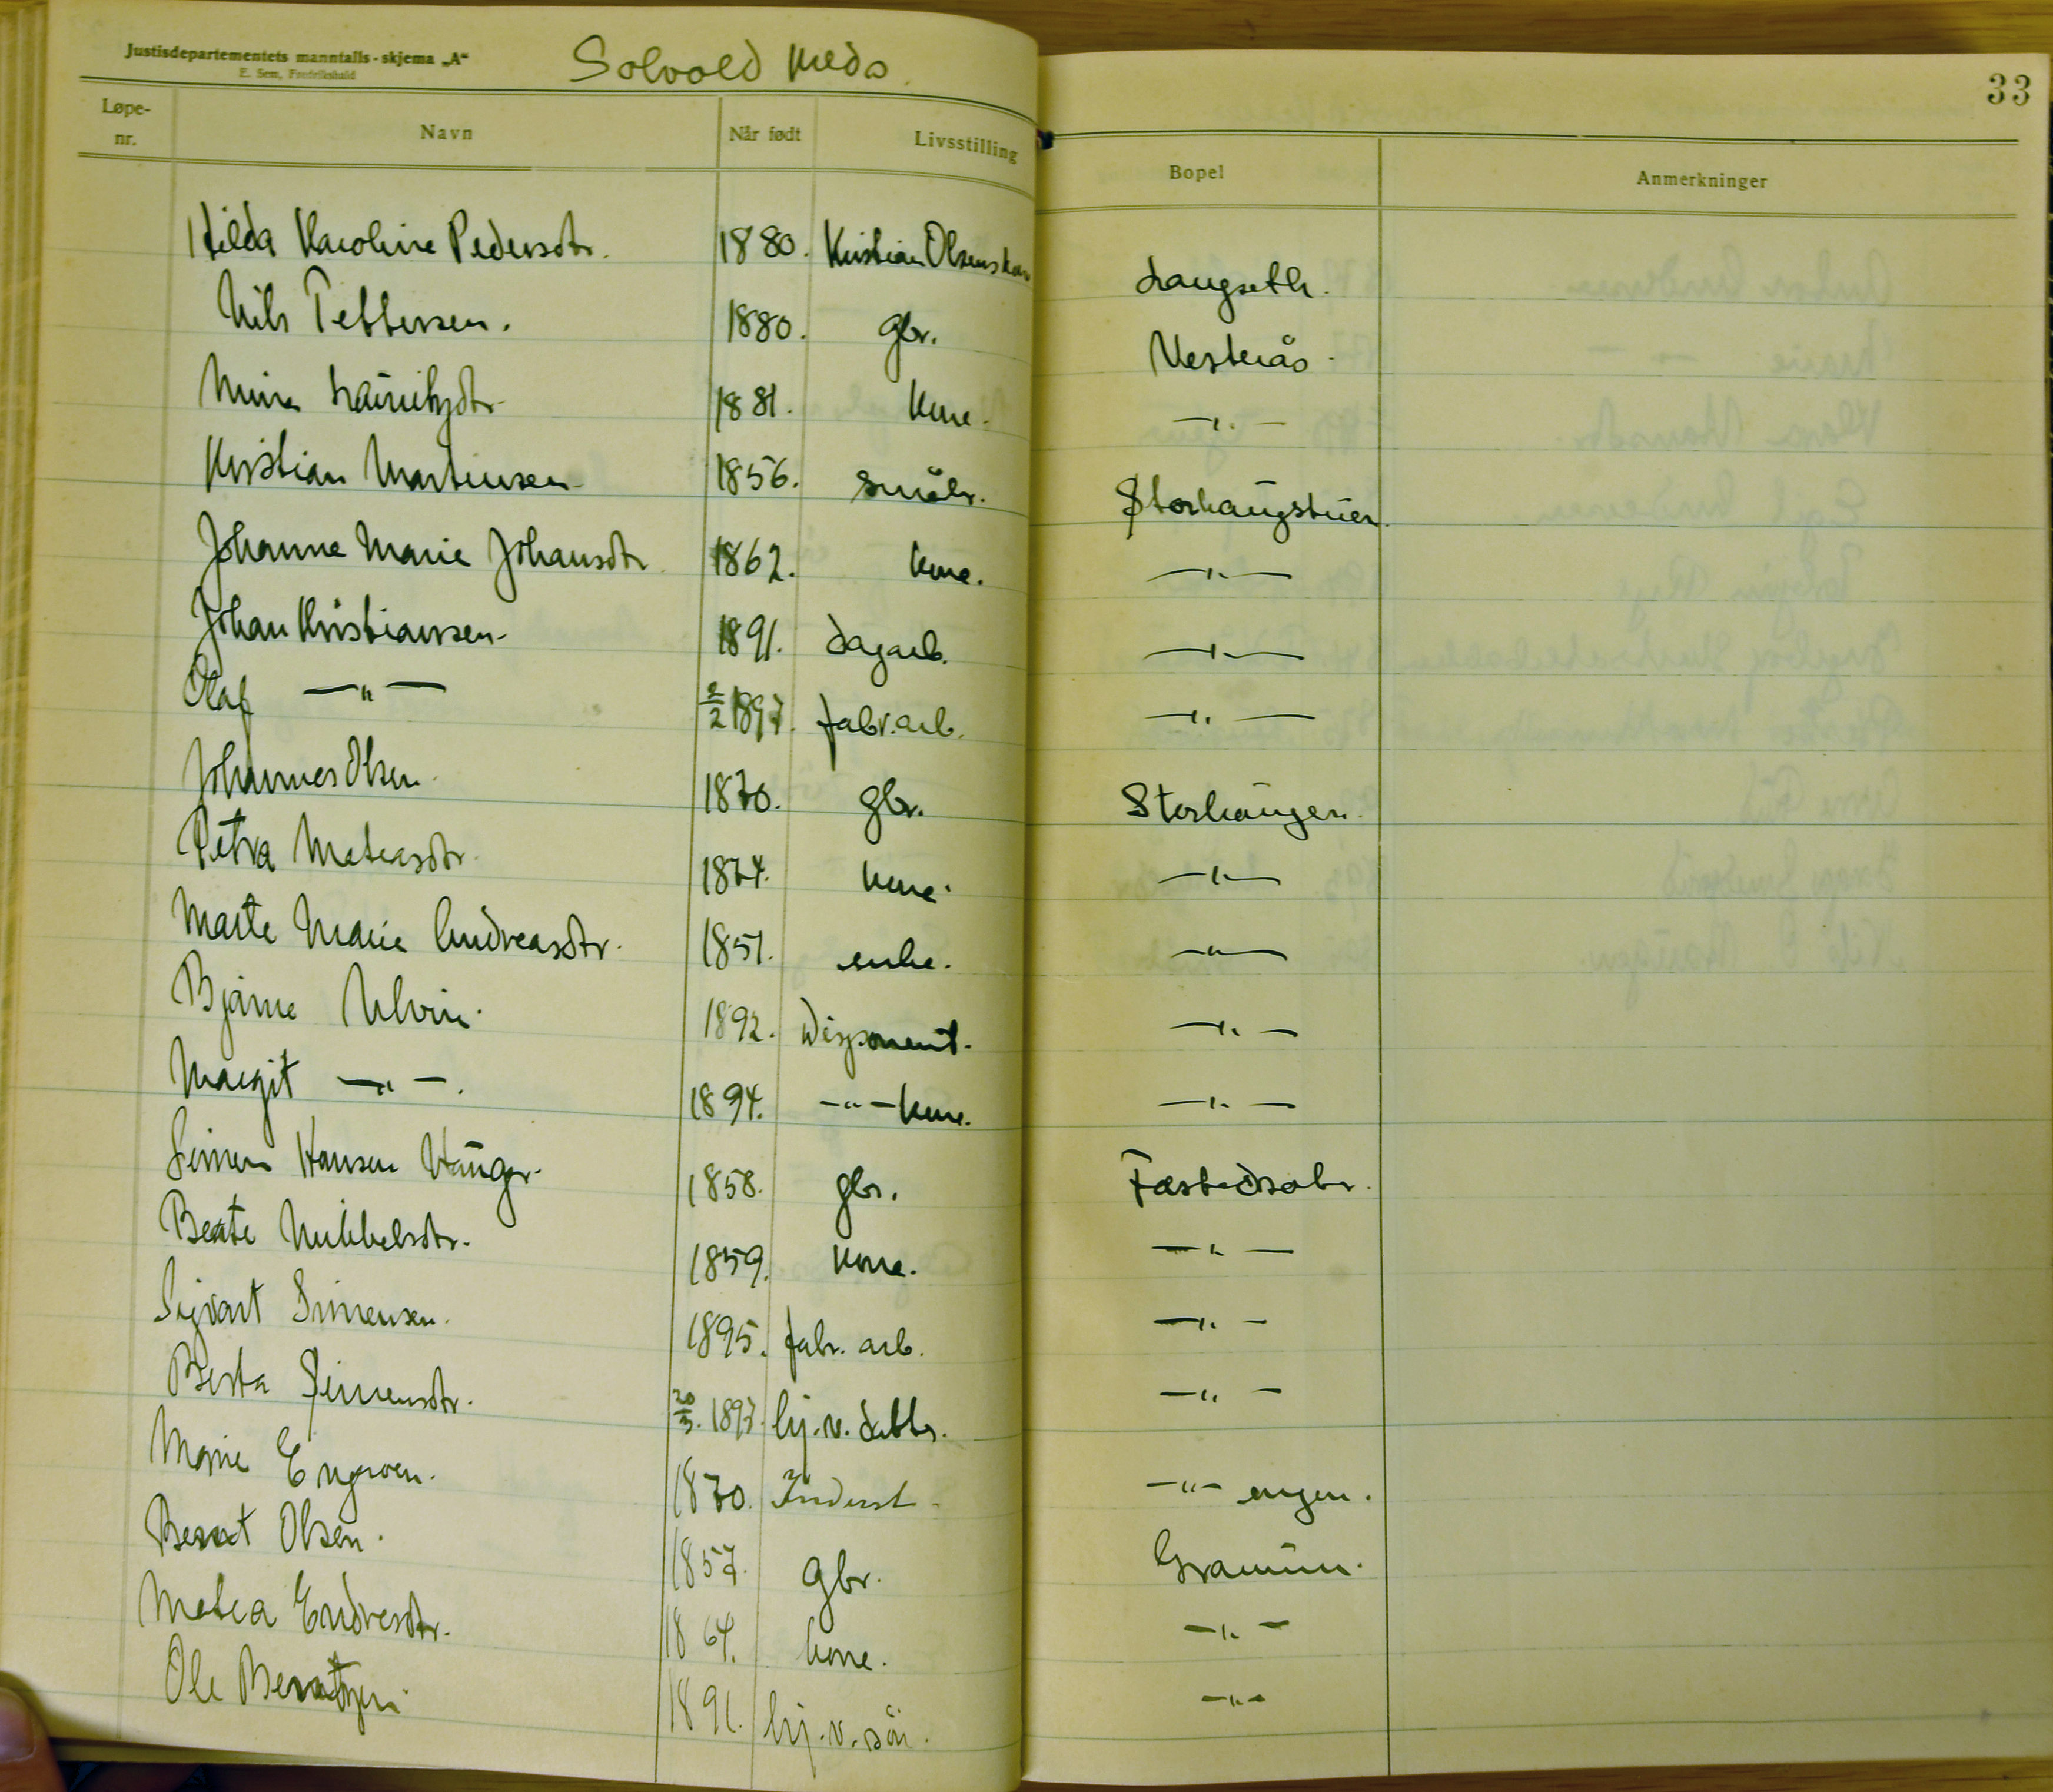 Justisdepartementets manntalls-skjema „A“
E. Sem, Fredrikshald
Solvold kreds
33
Løpe-nr. Navn Når født Livsstilling Bopel Anmerkninger
Hilda Karoline Pedersdtr. 1880. Kristian Olsens kone Langseth.
Nils Pettersen. 1880. gbr. Vesterås.
Mina Lauritzdtr. 1881. kone. —"—
Kristian Martinsen 1856. småbr. Storhaugstuen.
Johanne Marie Johansdtr. 1862. kone. —"—
Johan Kristiansen 1891. dagarb. —"—
Olaf —"— 2/2 1897. fabr.arb. —"—
Johannes Olsen 1870. gbr. Storhaugen.
Petra Mateasdtr. 1874. kone. —"—
Marte Marie Andreasdtr. 1851. enke. —"—
Bjarne Ulvin. 1892. Disponent. —"—
Margit —"—. 1894. —"— kone. —"—
Simen Hansen Hauger. 1858. gbr. Fæstadsæter.
Beate Mikkelsdtr. 1859. kone. —"—
Sigvart Simensen. 1895. fabr. arb. —"—
Berta Simensdtr. 1897. hj.v. dattr. —"—
Marie Engroen. 1870. Inderst —"— engen.
Bernt Olsen. 1857. gbr. Gramün.
Matea Endresdtr. 1864. kone. —"—
Ole Berntsen. 1891. hj.v. sön. —"—